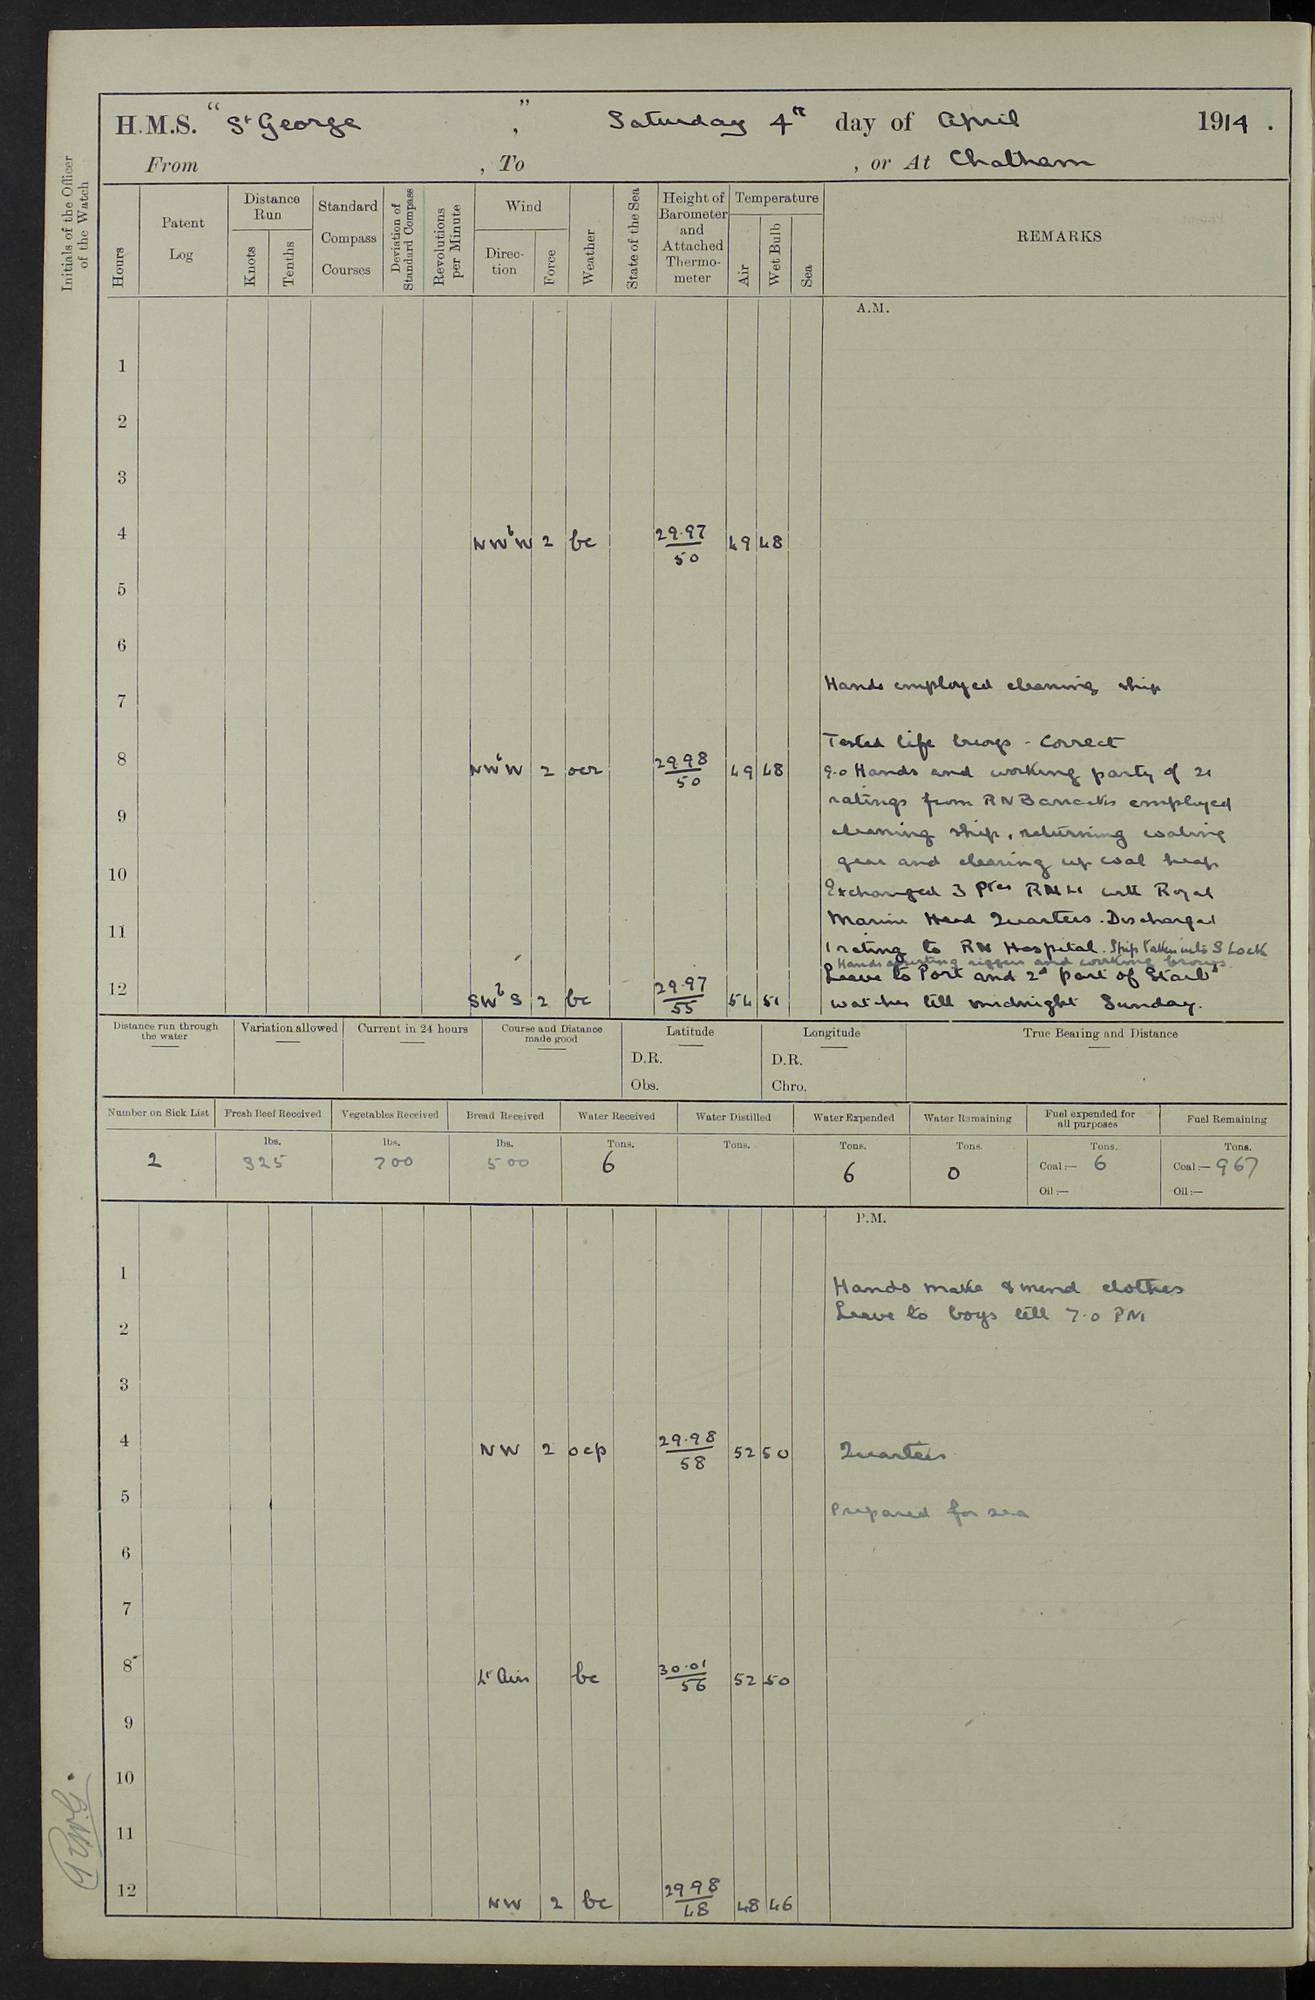 H.M.S. "St George", Saturday 4th day of April 1914.
From , To , or At Chatham
Initials of the Officer of the Watch
Hours
Patent Log
Distance Run
Knots
Tenths
Standard Compass Courses
Deviation of Standard Compass
Revolutions per Minute
Wind
Direction
Force
Weather
State of the Sea
Height of Barometer and Attached Thermometer
Temperature
Air
Wet Bulb
Sea
REMARKS
A.M.
1
2
3
4 NWbW 2 bc 29.97/50 49 48
5
6
Hands employed cleaning ship
7
Tested life buoys - Correct
8 NWbW 2 ocr 29.98/50 49 48
9.0 Hands and working party of 21
ratings from RN Barracks employed
9
cleaning ship, returning coaling
gear and clearing up coal heap
10
Exchanged 3 Ptes RMLI with Royal
Marine Head Quarters. Discharged
11
1 rating to RN Hospital. Ship taken into S Lock
Hands assisting riggers and working brows.
Leave to Port and 2d part of Starbd
12 SWbS 2 bc 29.97/55 54 51
watches till midnight Sunday.
Distance run through the water
Variation allowed
Current in 24 hours
Course and Distance made good
Latitude
D.R.
Obs.
Longitude
D.R.
Chro.
True Bearing and Distance
Number on Sick List
2
Fresh Beef Received
lbs.
325
Vegetables Received
lbs.
700
Bread Received
lbs.
500
Water Received
Tons.
6
Water Distilled
Tons.
Water Expended
Tons.
6
Water Remaining
Tons.
0
Fuel expended for all purposes
Tons.
Coal:— 6
Oil:—
Fuel Remaining
Tons.
Coal:— 967
Oil:—
P.M.
1
Hands make & mend clothes
Leave to boys till 7.0 PM
2
3
4 NW 2 ocp 29.98/58 52 50 Quarters
5
Prepared for sea
6
7
8 Lt Airs bc 30.01/56 52 50
9
10
11
12 NW 2 bc 29.98/48 48 46